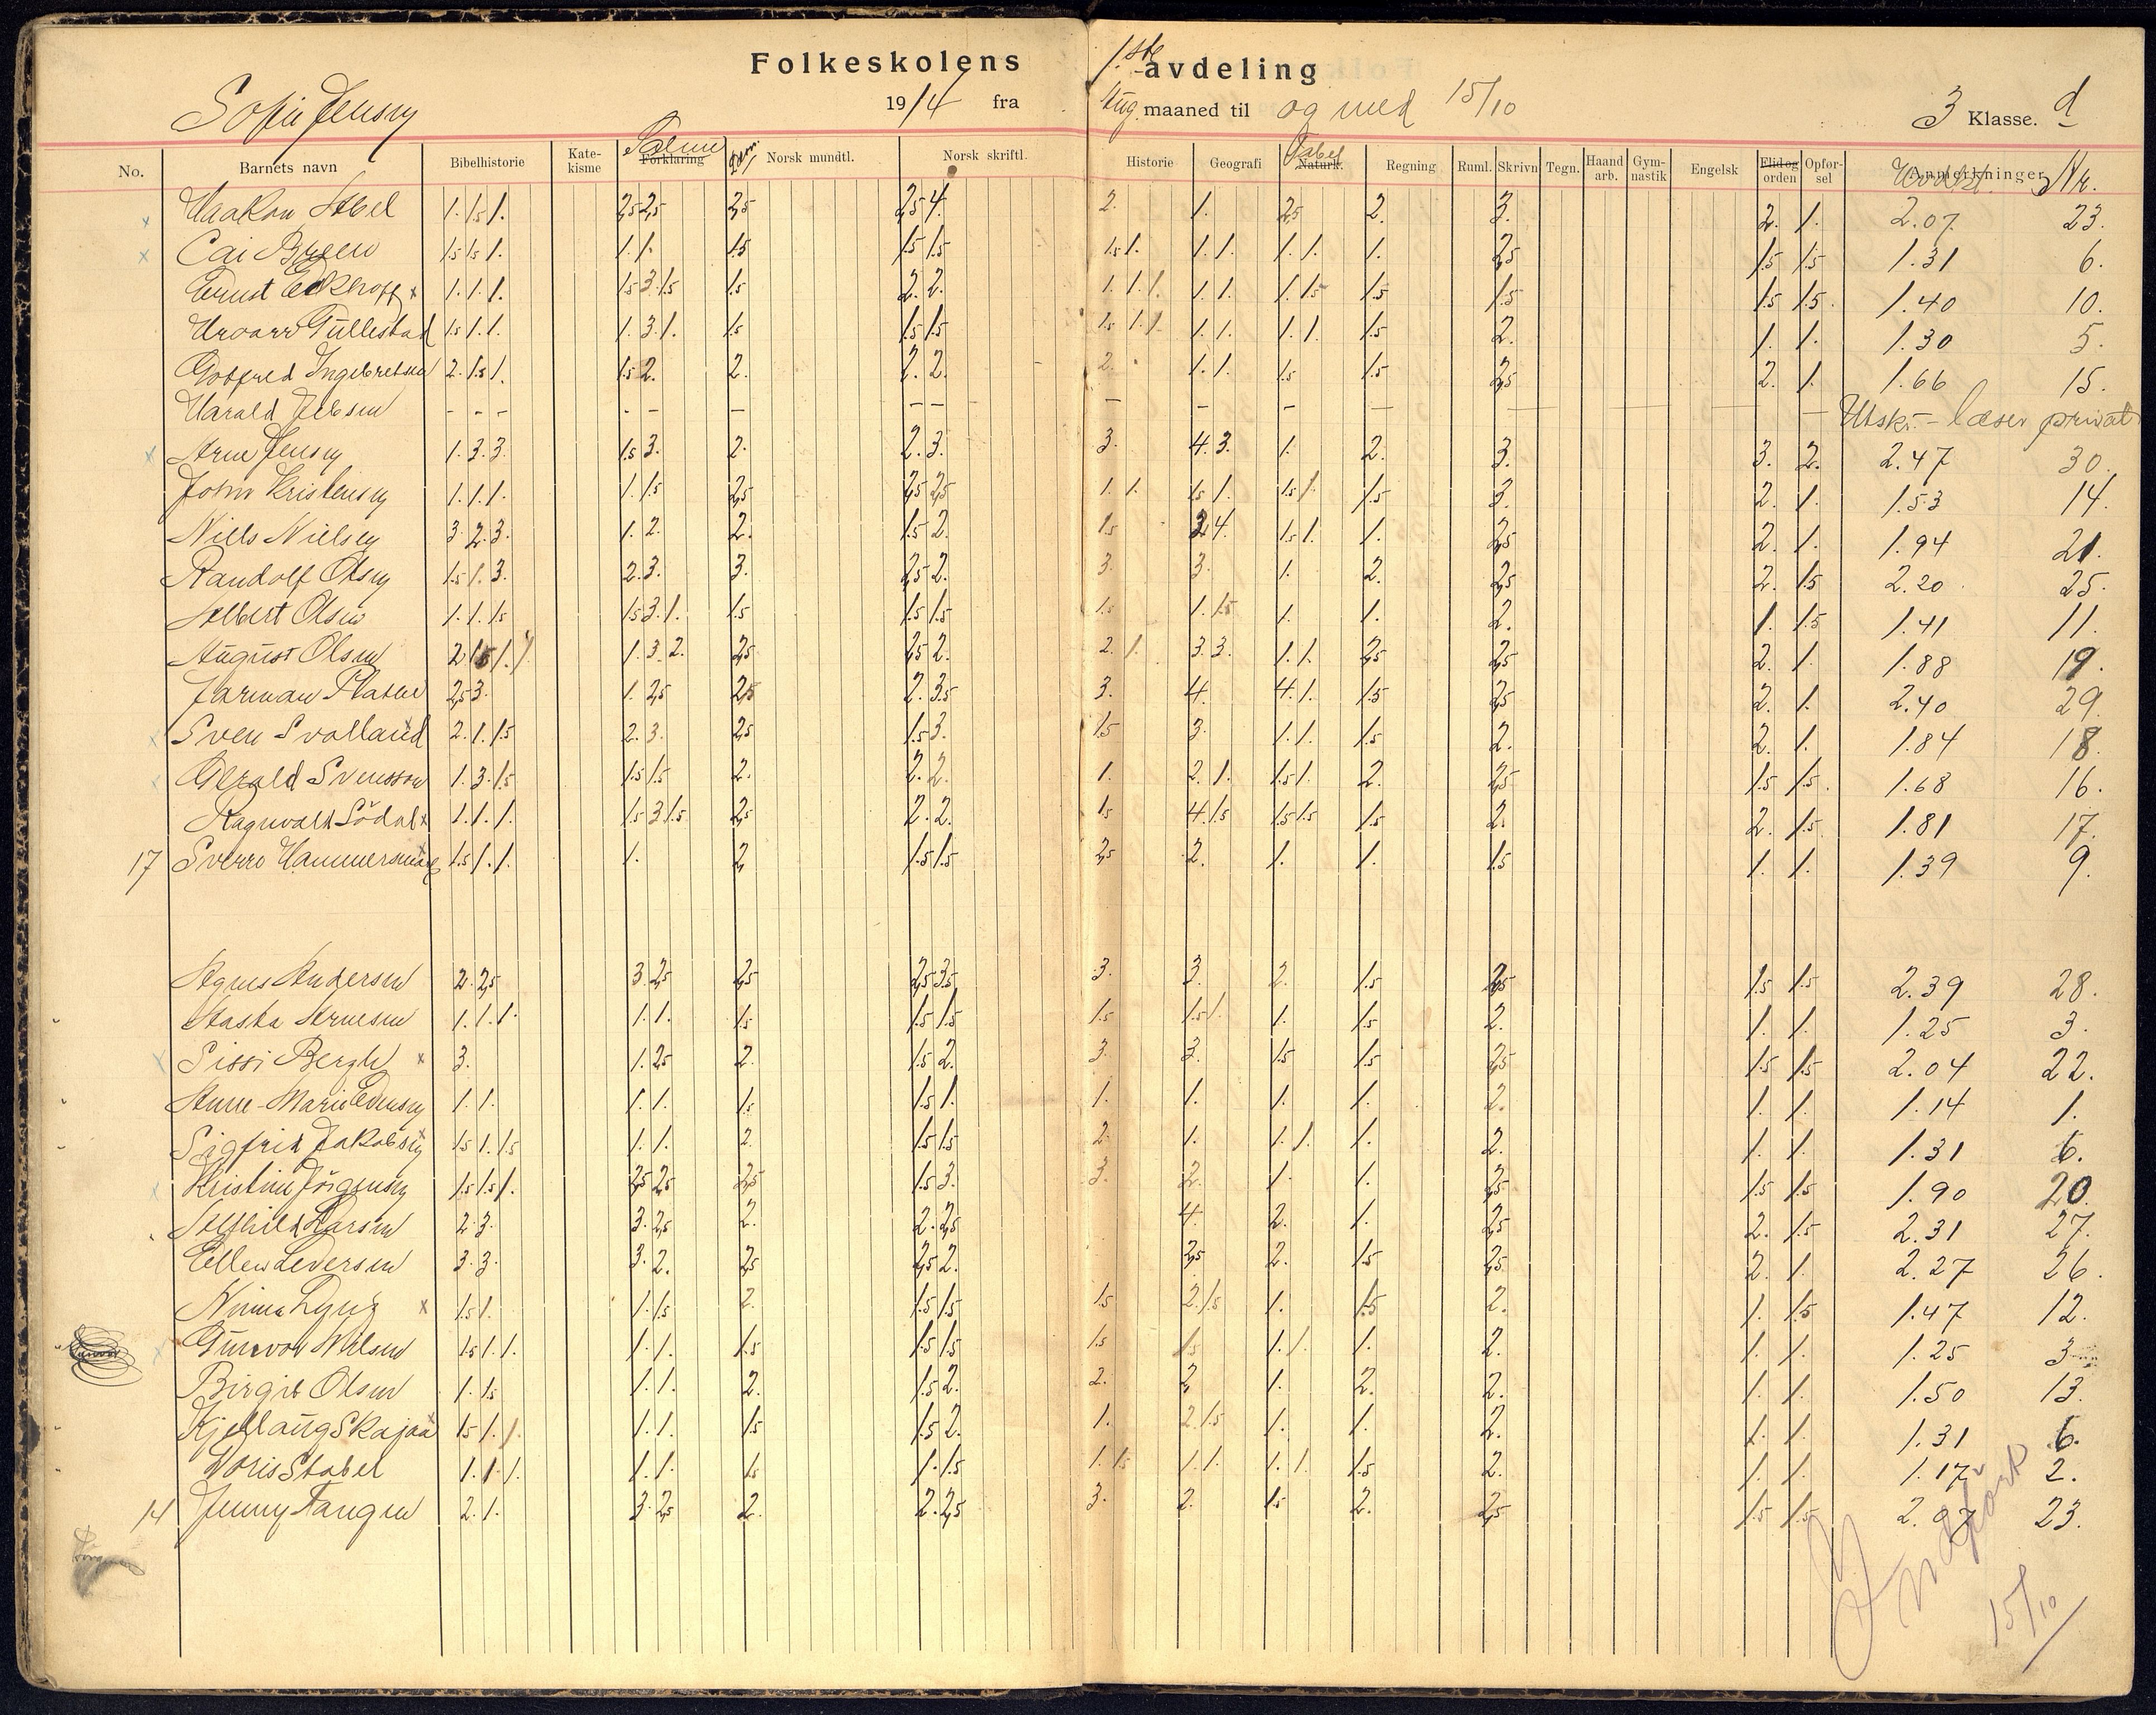 Folkeskolens 1ste avdeling
Sofie Jensen 1914 fra Aug. maaned til og med 15/10 3 Klasse. d
No. Barnets navn Bibelhistorie Kate-kisme Salme Forklaring Norsk mundtl. Norsk skriftl. Historie Geografi Fabel Naturk. Regning Ruml. Skrivn Tegn. Haand arb. Gym-nastik Engelsk Flid og orden Opfør-sel Anmerkninger Nr.
Haakon Abel 1. 1.5 1. 2,5 2,5 2,5 2,5 4. 2. 1. 2,5 2. 3. 2. 1. 2.07 23.
Cai Bugen 1.5 1.5 1. 1. 1. 1.5 1.5 1.5 1.5 1. 1. 1. 1. 1. 1. 2,5 1.5 1.5 1.31 6.
Ernst Eckhoff x 1. 1. 1. 1.5 3. 1.5 1.5 2. 2. 1. 1. 1. 1. 1. 1. 1.5 1.5 1.5 1.5 1.5 1.40 10.
Gullestad 1.5 1. 1. 1. 3. 1. 1.5 1.5 1.5 1.5 1. 1. 1. 1. 1. 1. 1.5 2. 1. 1. 1.30 5.
Gotfred Ingebretsen 2. 1.5 1. 1.5 2. 2. 2. 2. 2. 1. 1. 1.5 1.5 2,5 2. 1. 1.66 15.
Harald Jebsen - - - - - - - - - - - - - - Utskr. - læser privat
Arne Jensen 1. 3. 3. 1.5 3. 2. 2. 3. 3. 4. 3. 1. 2. 3. 3. 2. 2.47 30.
John Kristensen 1. 1. 1. 1. 1.5 2,5 2,5 2,5 1. 1. 1.5 1. 1.5 1. 1.5 3. 2. 1. 1.53 14.
Niels Nielsen 3. 2. 3. 1. 2. 2. 1.5 2. 1.5 3. 4. 1.5 1. 1. 2,5 2. 1. 1.94 21.
Randolf Olsen 1.5 1. 3. 2. 3. 3. 2,5 2. 3. 3. 1. 2. 2,5 2. 1.5 2.20 25.
Albert Olsen 1. 1. 1.5 1.5 3. 1. 1.5 1.5 1.5 1.5 1. 1.5 1. 1. 2. 1. 1.5 1.41 11.
August Olsen 2 1.5 1. 1. 1. 3. 2. 2,5 2,5 2. 2. 1. 3. 3. 1. 1. 2,5 2,5 2. 1. 1.88 19.
Jarman Platou 2,5 3. 1. 2,5 2,5 2. 3.5 3. 4. 4. 1. 1.5 2,5 2. 1. 2.40 29.
Sven Svolland 2. 1. 1.5 2. 3. 2,5 1.5 3. 1.5 3. 1. 1. 1.5 2. 2. 1. 1.84 18.
Gerald Svensson 1. 3. 1.5 1.5 1.5 2. 2. 2. 1. 2. 1. 1.5 1. 2. 2,5 1.5 1.5 1.68 16.
Ragnvald Södal x 1. 1. 1. 1.5 3. 1.5 2,5 2. 2. 1.5 4. 1.5 1.5 1.5 1.5 2. 2. 1.5 1.81 17.
17 Sverre Hammersmark 1.5 1. 1. 1. 2, 1.5 1.5 2,5 2. 1. 1. 1.5 1. 1. 1.39 9.
Agnes Andersen 2. 2,5 3. 2,5 2,5 2,5 3.5 3. 3. 2. 1.5 2,5 1.5 1.5 2.39 28.
Aasta Arnesen 1. 1. 1. 1. 1. 1.5 1.5 1.5 1.5 1.5 1. 1. 1.5 2. 1. 1. 1.25 3.
Sissi Bergh x 3. 1. 2,5 2. 1.5 2. 3. 3. 1.5 1.5 2,5 1.5 1.5 2.04 22.
Anne-Marie Edensen 1. 1. 1. 1. 1.5 1.5 1. 1. 1. 1. 1. 2. 1. 1. 1.14 1.
Sigfrid Jakobsen 1.5 1. 1.5 1. 1. 2. 1.5 1.5 2. 1. 1. 1. 1. 2. 1. 1. 1.31 6.
Kristine Jörgensen 1.5 1.5 1. 2,5 2,5 2,5 1.5 3. 3. 2. 1. 1. 2,5 1.5 1.5 1.90 20.
Alfhild Larsen 2. 3. 3. 2,5 2. 2. 2,5 4. 2. 1. 2,5 2. 1.5 2.31 27.
Ellen Ledersen 3. 3. 3. 2. 2,5 2,5 2. 2,5 2. 1.5 2,5 2. 1. 2.27 26.
Ninna Lynz x 1.5 1. 1. 1.5 2. 1.5 1.5 1.5 2. 1.5 1. 1.5 2. 1. 1.5 1.47 12.
Gunvor Nilsen 1.5 1. 1. 1. 1. 1.5 1.5 1.5 1.5 1.5 1. 1. 1. 2. 1. 1. 1.25 3
Birgit Olsen 1. 1.5 1. 1. 2. 1.5 2. 2. 2, 1. 2. 2. 1. 1. 1.50 13.
Kjellaug Skajaa 1.5 1. 1. 1. 1. 1.5 1.5 2. 1. 2. 1.5 1. 1. 2. 1. 1. 1.31 6.
Doris Stabel 1. 1. 1. 1. 1. 1.5 1. 1.5 1. 1.5 1. 1. 1. 1. 1.5 2. 1. 1. 1.17 2.
14 Jenny Tangen 2. 1. 3. 2,5 2. 2. 2,5 3. 2. 1.5 2. 2,5 1.5 1.5 2.07 23.
15/10